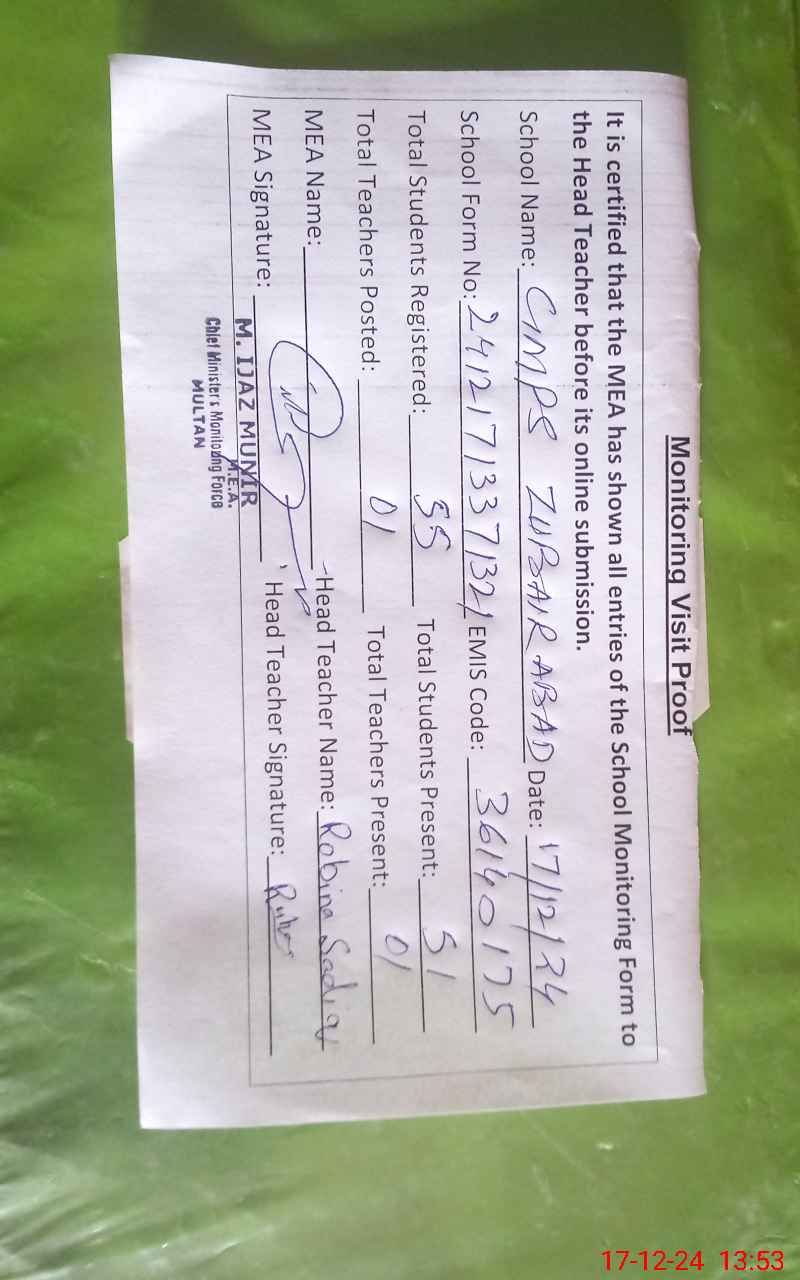 Monitoring Visit Proof
It is certified that the MEA has shown all entries of the School Monitoring Form to
the Head Teacher before its online submission.
School Name: GMPS ZUBAIR ABAD Date: 17/12/24
School Form No: 24121713371321 EMIS Code: 36140175
Total Students Registered: 55 Total Students Present: 51
Total Teachers Posted: 01 Total Teachers Present: 01
MEA Name: Head Teacher Name: Robina Sadiq
MEA Signature: Head Teacher Signature:
M. IJAZ MUNIR
M.E.A.
Chief Minister's Monitoring Force
MULTAN
17-12-24 13:53